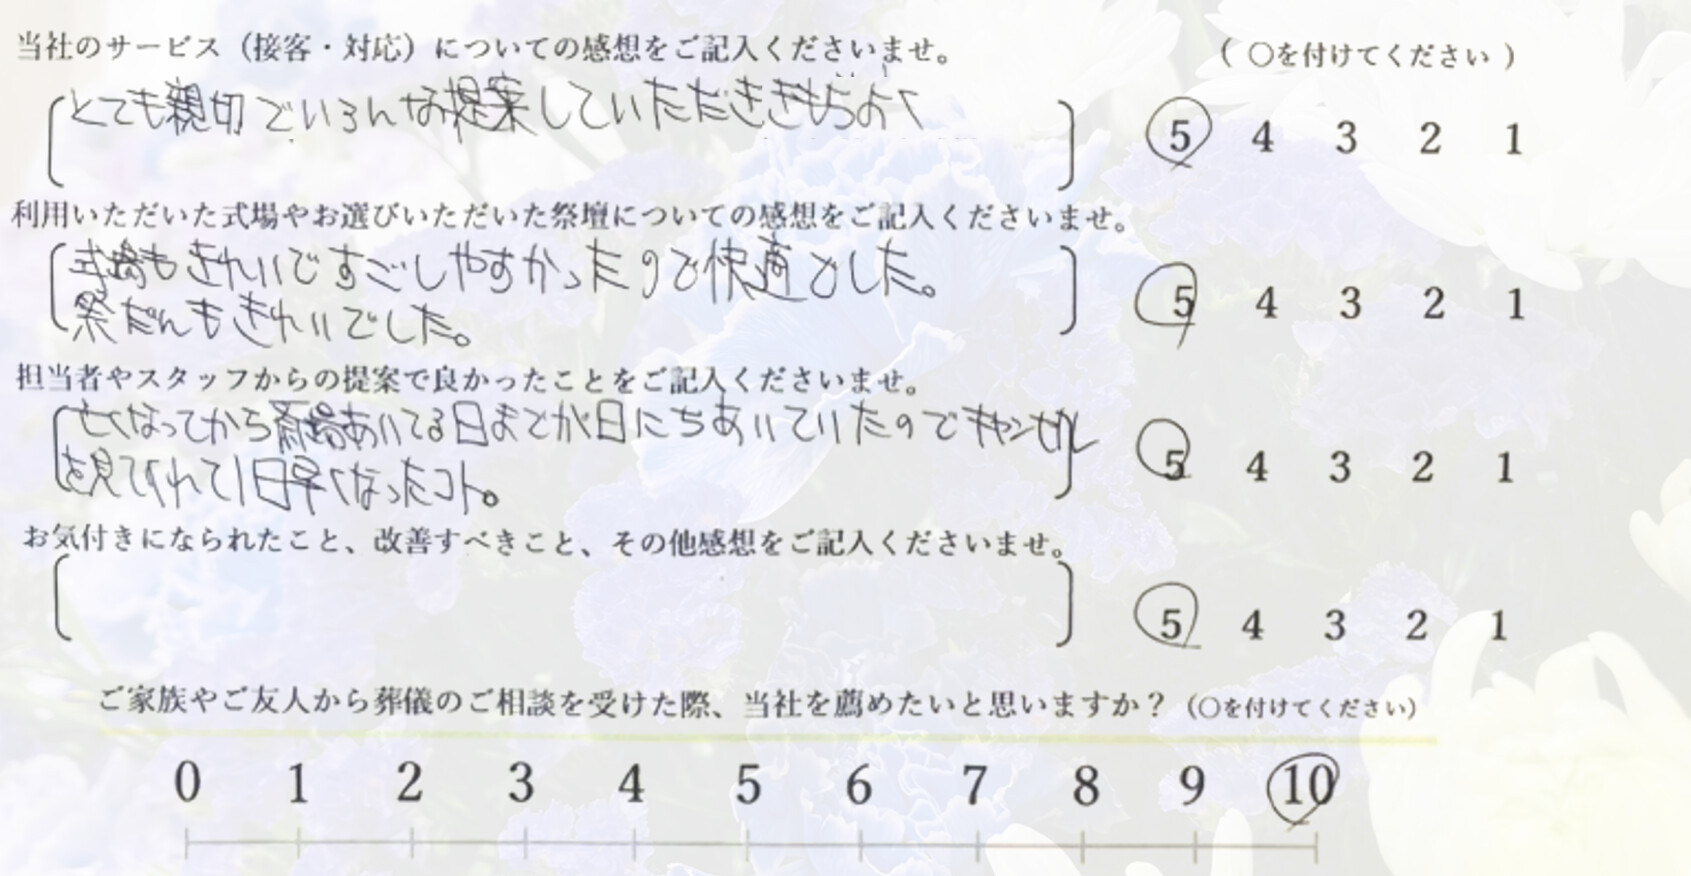 当社のサービス（接客・対応）についての感想をご記入くださいませ。
（ ○を付けてください ）
とても親切でいろんな提案していただききもちよく
5 4 3 2 1
利用いただいた式場やお選びいただいた祭壇についての感想をご記入くださいませ。
式場もきれいですごしやすかったので快適でした。
祭だんもきれいでした。
5 4 3 2 1
担当者やスタッフからの提案で良かったことをご記入くださいませ。
亡くなってから斎場あいてる日までが日にちあいていたのでキャンセル
を見てくれて1日早くなったコト。
5 4 3 2 1
お気付きになられたこと、改善すべきこと、その他感想をご記入くださいませ。
5 4 3 2 1
ご家族やご友人から葬儀のご相談を受けた際、当社を薦めたいと思いますか？（○を付けてください）
0 1 2 3 4 5 6 7 8 9 10